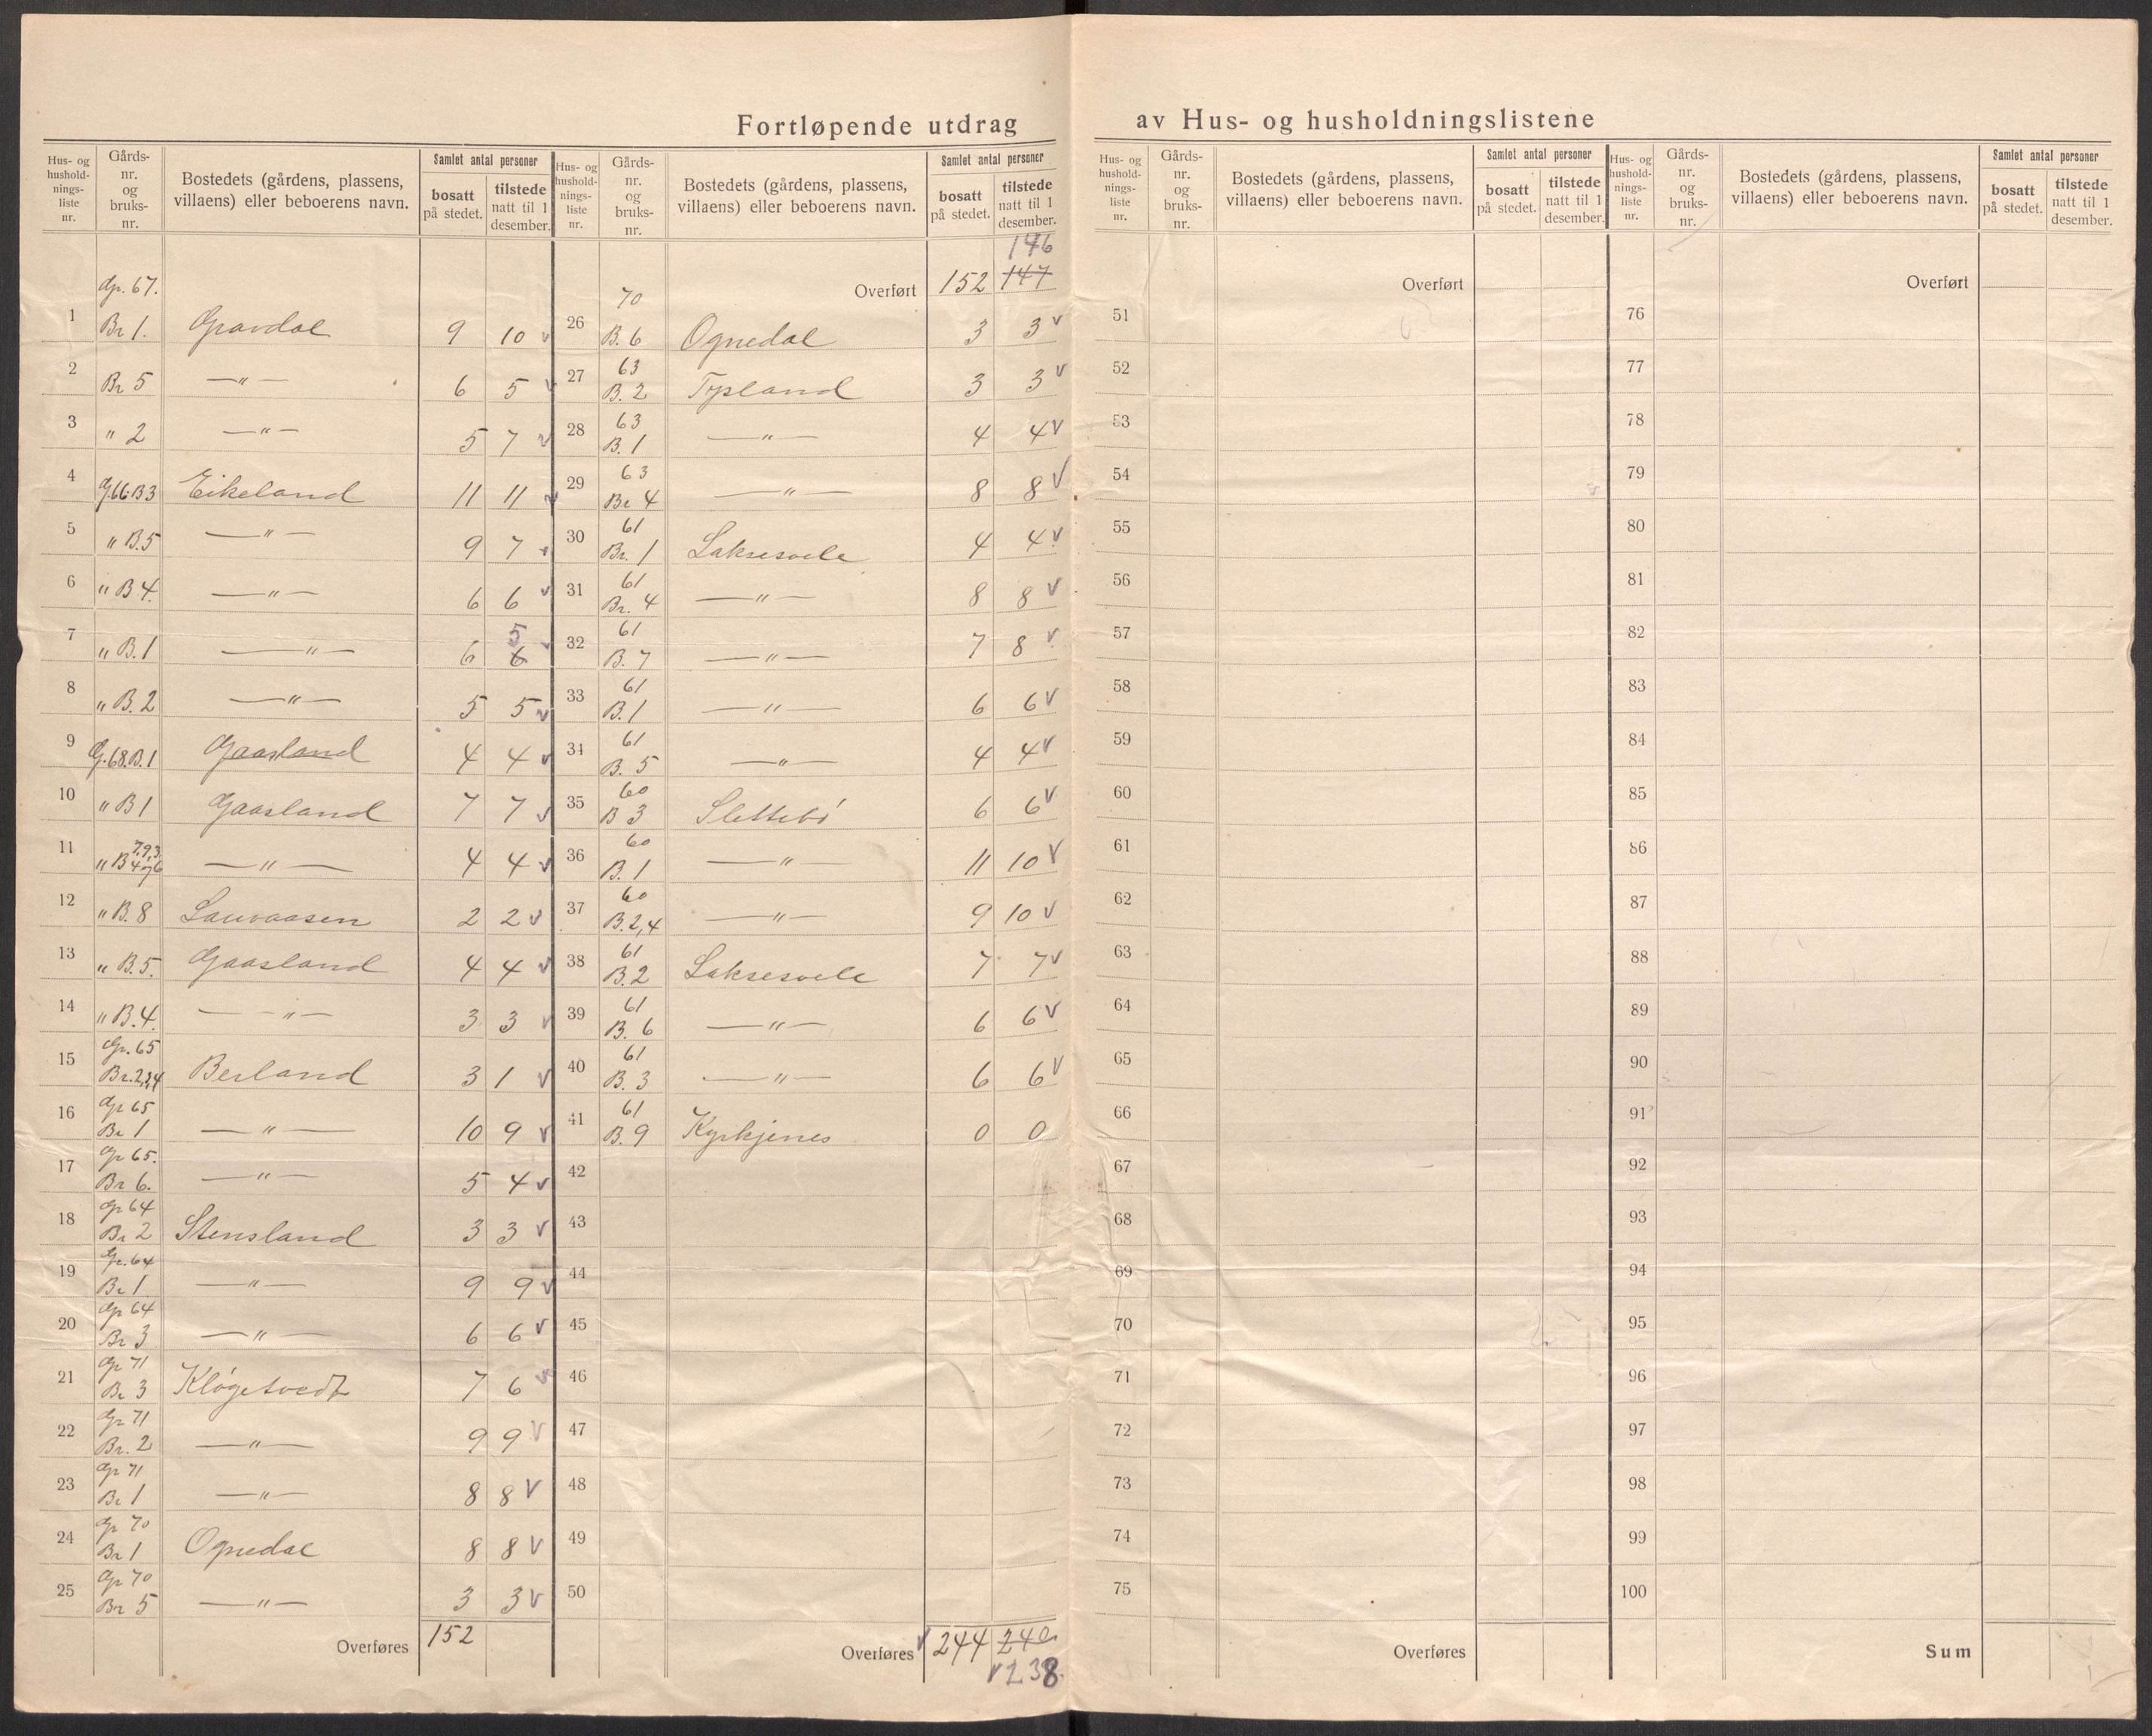 Fortløpende utdrag av Hus- og husholdningslistene
Hus- og hushold-nings-liste nr. | Gårds-nr. og bruks-nr. | Bostedets (gårdens, plassens, villaens) eller beboerens navn. | Samlet antal personer | bosatt på stedet. | tilstede natt til 1 desember.
Gr. 67.
1 Br 1. Gravdal 9 10 v
2 Br 5 —"— 6 5 v
3 " 2 —"— 5 7 v
4 G.66.B3 Eikeland 11 11 v
5 " B.5 —"— 9 7 v
6 " B 4. —"— 6 6 v
7 " B.1 —"— 6 6 5 v
8 " B.2 —"— 5 5 v
9 G.68.B.1 Gaasland 4 4 v
10 " B 1 Gaasland 7 7 v
11 " B 7,9,3, 4 og 6 —"— 4 4 v
12 " B.8 Lauvaasen 2 2 v
13 " B.5. Gaasland 4 4 v
14 " B.4. —"— 3 3 v
15 Gr. 65 Br. 2,3,4 Berland 3 1 v
16 Gr 65 Br 1 —"— 10 9 v
17 Gr 65. Br 6. —"— 5 4 v
18 Gr 64 Br 2 Stensland 3 3 v
19 Gr. 64 Br 1 —"— 9 9 v
20 Gr 64 Br 3 —"— 6 6 v
21 Gr 71 Br 3 Kløgetvedt 7 6 v
22 Gr 71 Br. 2 —"— 9 9 v
23 Gr 71 Br 1 —"— 8 8 v
24 Gr 70 Br 1 Ognedal 8 8 v
25 Gr 70 Br 5 —"— 3 3 v
Overføres 152
Hus- og hushold-nings-liste nr. | Gårds-nr. og bruks-nr. | Bostedets (gårdens, plassens, villaens) eller beboerens navn. | Samlet antal personer | bosatt på stedet. | tilstede natt til 1 desember.
146
Overført 152 147
26 70 B. 6 Ognedal 3 3 v
27 63 B. 2 Typland 3 3 v
28 63 B. 1 —"— 4 4 v
29 63 Br 4 —"— 8 8 v
30 61 Br. 1 Laksesvele 4 4 v
31 61 Br. 4 —"— 8 8 v
32 61 B. 7 —"— 7 8 v
33 61 B. 1 —"— 6 6 v
34 61 B. 5 —"— 4 4 v
35 60 B 3 Slettebø 6 6 v
36 60 B. 1 —"— 11 10 v
37 60 B. 2,4 —"— 9 10 v
38 61 B. 2 Laksesvele 7 7 v
39 61 B. 6 —"— 6 6 v
40 61 B. 3 —"— 6 6 v
41 61 B. 9 Kyrkjenes 0 0
42
43
44
45
46
47
48
49
50
Overføres v 244 240
v 238.
Hus- og hushold-nings-liste nr. | Gårds-nr. og bruks-nr. | Bostedets (gårdens, plassens, villaens) eller beboerens navn. | Samlet antal personer | bosatt på stedet. | tilstede natt til 1 desember.
Overført
51
52
53
54
55
56
57
58
59
60
61
62
63
64
65
66
67
68
69
70
71
72
73
74
75
Overføres
Hus- og hushold-nings-liste nr. | Gårds-nr. og bruks-nr. | Bostedets (gårdens, plassens, villaens) eller beboerens navn. | Samlet antal personer | bosatt på stedet. | tilstede natt til 1 desember.
Overført
76
77
78
79
80
81
82
83
84
85
86
87
88
89
90
91
92
93
94
95
96
97
98
99
100
Sum